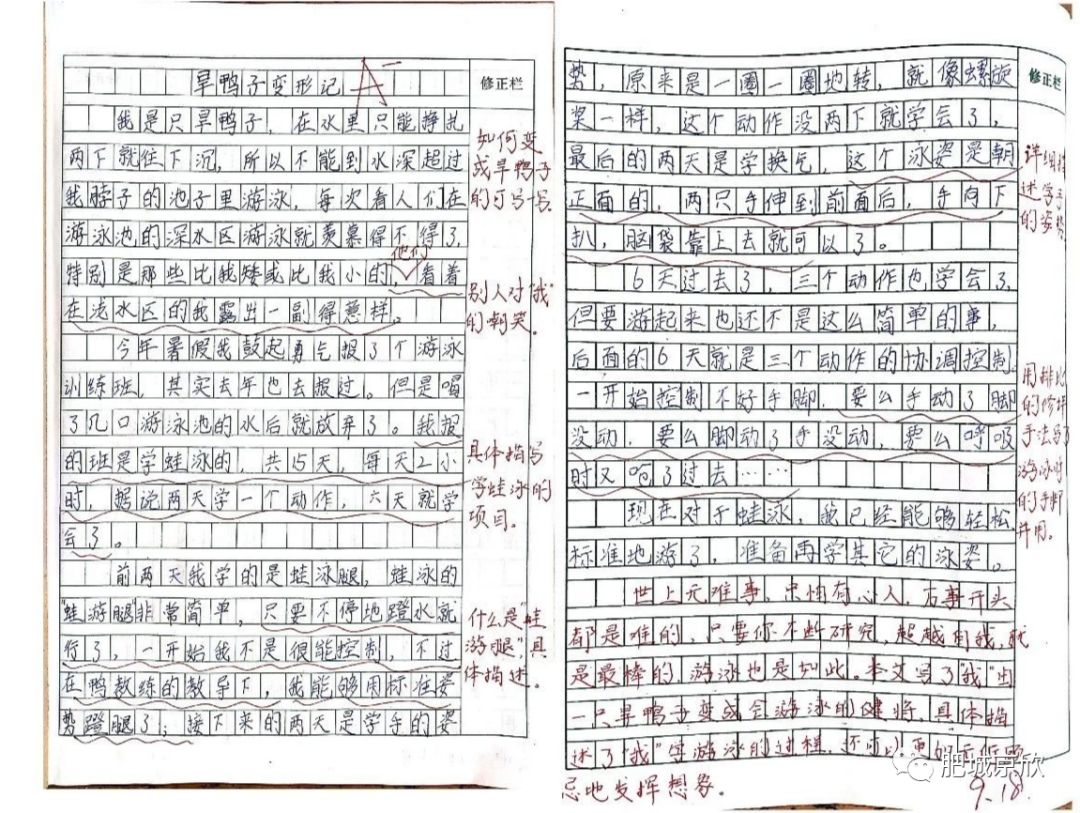 旱鸭子变形记
A-
修正栏
我是只旱鸭子，在水里只能挣扎
两下就往下沉，所以不能到水深超过
我脖子的池子里游泳，每次看人们在
游泳池的深水区游泳就羡慕得不得了，
他们
特别是那些比我矮或比我小的，看着
在浅水区的我露出一副得意样。
今年暑假我鼓起勇气报了个游泳
训练班，其实去年也去报过，但是喝
了几口游泳池的水后就放弃了。我报
的班是学蛙泳的，共15天，每天2小
时，据说两天学一个动作，六天就学
会了。
前两天我学的是蛙泳腿，蛙泳的
"蛙游腿"非常简单，只要不停地蹬水就
行了，一开始我不是很能控制，不过
在鸭教练的教导下，我能够用标准姿
势蹬腿了；接下来的两天是学手的姿
如何变
成旱鸭子
的可写一写.
别人对"我"
的嘲笑。
具体描写
学蛙泳的
项目。
什么是"蛙
游腿"，具
体描述。
修正栏
势，原来是一圈一圈地转，就像螺旋
桨一样，这个动作没两下就学会了，
最后的两天是学换气，这个泳姿是朝
正面的，两只手伸到前面后，手向下
扒，脑袋靠上去就可以了。
6天过去了，三个动作也学会了，
但要游起来也还不是这么简单的事，
后面的6天就是三个动作的协调控制。
一开始控制不好手脚，要么手动了脚
没动，要么脚动了手没动，要么呼吸
时又呛了过去……
现在对于蛙泳，我已经能够轻松、
标准地游了，准备再学其它的泳姿。
世上无难事，只怕有心人，万事开头
都是难的，只要你不断研究，超越自我，就
是最棒的，游泳也是如此。本文写了"我"由
一只旱鸭子变成会游泳的健将，具体描
述了"我"学游泳的过程，还可以更加无所顾
忌地发挥想象。
9.18
详细描
述学手
的姿势
用排比
的修辞
手法写了
游泳时
的手脚
并用。
肥城京欣